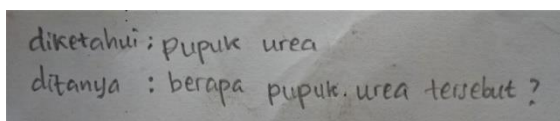 diketahui : pupuk urea
ditanya : berapa pupuk. urea tersebut ?